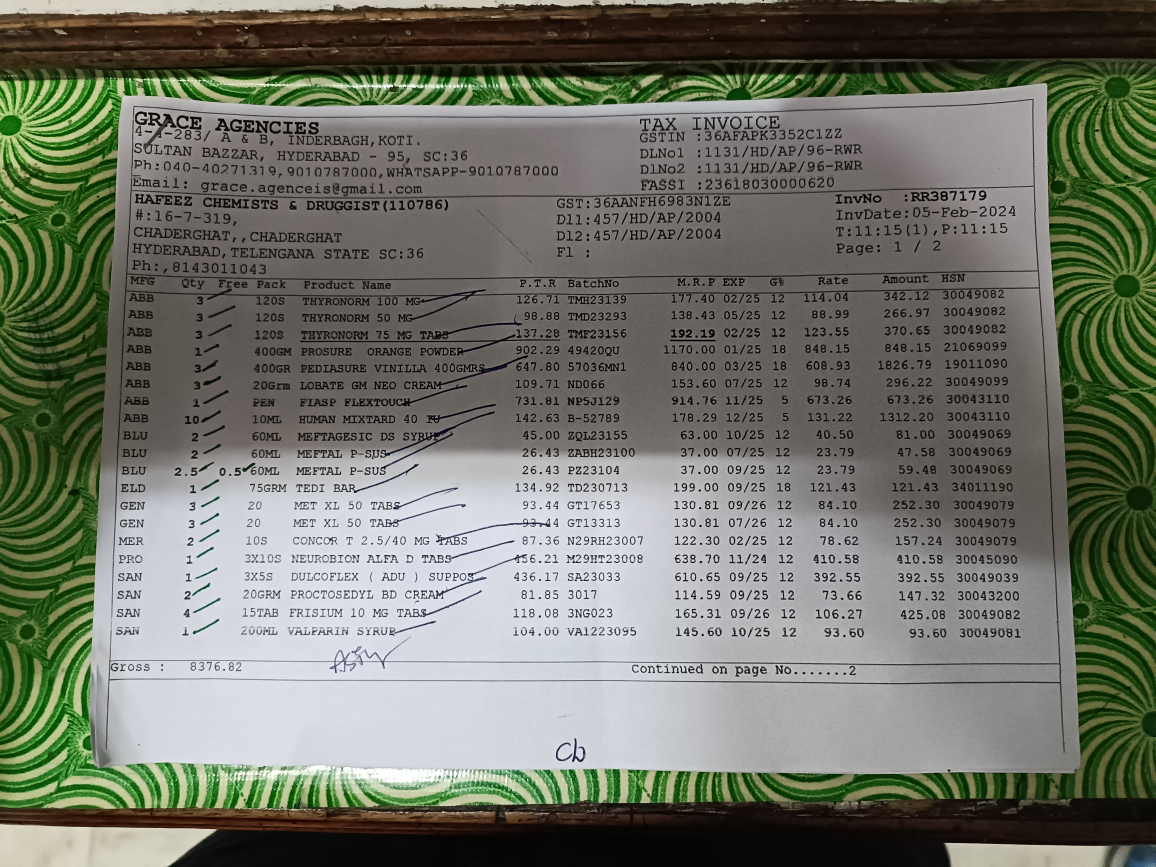 GRACE AGENCIES
4-4-283/ A & B, INDERBAGH,KOTI.
SULTAN BAZZAR, HYDERABAD - 95, SC:36
Ph:040-40271319,9010787000,WHATSAPP-9010787000
Email: grace.agenceis@gmail.com
TAX INVOICE
GSTIN :36AFAPK3352C1ZZ
DLNo1 :1131/HD/AP/96-RWR
DlNo2 :1131/HD/AP/96-RWR
FASSI :23618030000620
HAFEEZ CHEMISTS & DRUGGIST(110786)
#:16-7-319,
CHADERGHAT,,CHADERGHAT
HYDERABAD,TELENGANA STATE SC:36
Ph:,8143011043
GST:36AANFH6983N1ZE
Dl1:457/HD/AP/2004
Dl2:457/HD/AP/2004
Fl :
InvNo :RR387179
InvDate:05-Feb-2024
T:11:15(1),P:11:15
Page: 1 / 2
MFG Qty Free Pack Product Name P.T.R BatchNo M.R.P EXP G% Rate Amount HSN
ABB 3 120S THYRONORM 100 MG 126.71 TMH23139 177.40 02/25 12 114.04 342.12 30049082
ABB 3 120S THYRONORM 50 MG 98.88 TMD23293 138.43 05/25 12 88.99 266.97 30049082
ABB 3 120S THYRONORM 75 MG TABS 137.28 TMF23156 192.19 02/25 12 123.55 370.65 30049082
ABB 1 400GM PROSURE ORANGE POWDER 902.29 49420QU 1170.00 01/25 18 848.15 848.15 21069099
ABB 3 400GR PEDIASURE VINILLA 400GMRS 647.80 57036MN1 840.00 03/25 18 608.93 1826.79 19011090
ABB 3 20Grm LOBATE GM NEO CREAM 109.71 ND066 153.60 07/25 12 98.74 296.22 30049099
ABB 1 PEN FIASP FLEXTOUCH 731.81 NP5J129 914.76 11/25 5 673.26 673.26 30043110
ABB 10 10ML HUMAN MIXTARD 40 IU 142.63 B-52789 178.29 12/25 5 131.22 1312.20 30043110
BLU 2 60ML MEFTAGESIC DS SYRUP 45.00 ZQL23155 63.00 10/25 12 40.50 81.00 30049069
BLU 2 60ML MEFTAL P-SUS 26.43 ZABH23100 37.00 07/25 12 23.79 47.58 30049069
BLU 2.5 0.5 60ML MEFTAL P-SUS 26.43 PZ23104 37.00 09/25 12 23.79 59.48 30049069
ELD 1 75GRM TEDI BAR 134.92 TD230713 199.00 09/25 18 121.43 121.43 34011190
GEN 3 20 MET XL 50 TABS 93.44 GT17653 130.81 09/26 12 84.10 252.30 30049079
GEN 3 20 MET XL 50 TABS 93.44 GT13313 130.81 07/26 12 84.10 252.30 30049079
MER 2 10S CONCOR T 2.5/40 MG TABS 87.36 N29RH23007 122.30 02/25 12 78.62 157.24 30049079
PRO 1 3X10S NEUROBION ALFA D TABS 456.21 M29HT23008 638.70 11/24 12 410.58 410.58 30045090
SAN 1 3X5S DULCOFLEX ( ADU ) SUPPOS 436.17 SA23033 610.65 09/25 12 392.55 392.55 30049039
SAN 2 20GRM PROCTOSEDYL BD CREAM 81.85 3017 114.59 09/25 12 73.66 147.32 30043200
SAN 4 15TAB FRISIUM 10 MG TABS 118.08 3NG023 165.31 09/26 12 106.27 425.08 30049082
SAN 1 200ML VALPARIN SYRUP 104.00 VA1223095 145.60 10/25 12 93.60 93.60 30049081
Gross : 8376.82
Continued on page No.......2
Cb